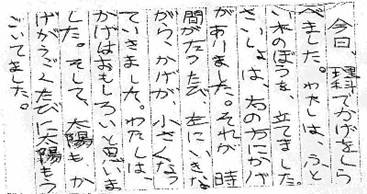 今日、理科でかげをしら
べました。わたしは、ふと
い木のぼうを、立てました。
さいしょは、右の方にかげ
がありました。それが、時
間がたつたび、左にいきな
がら、かげが、小さくなっ
ていきました。わたしは、
かげはおもしろいと思いま
した。そして、太陽も、か
げがうごくたびに太陽もう
ごいてました。